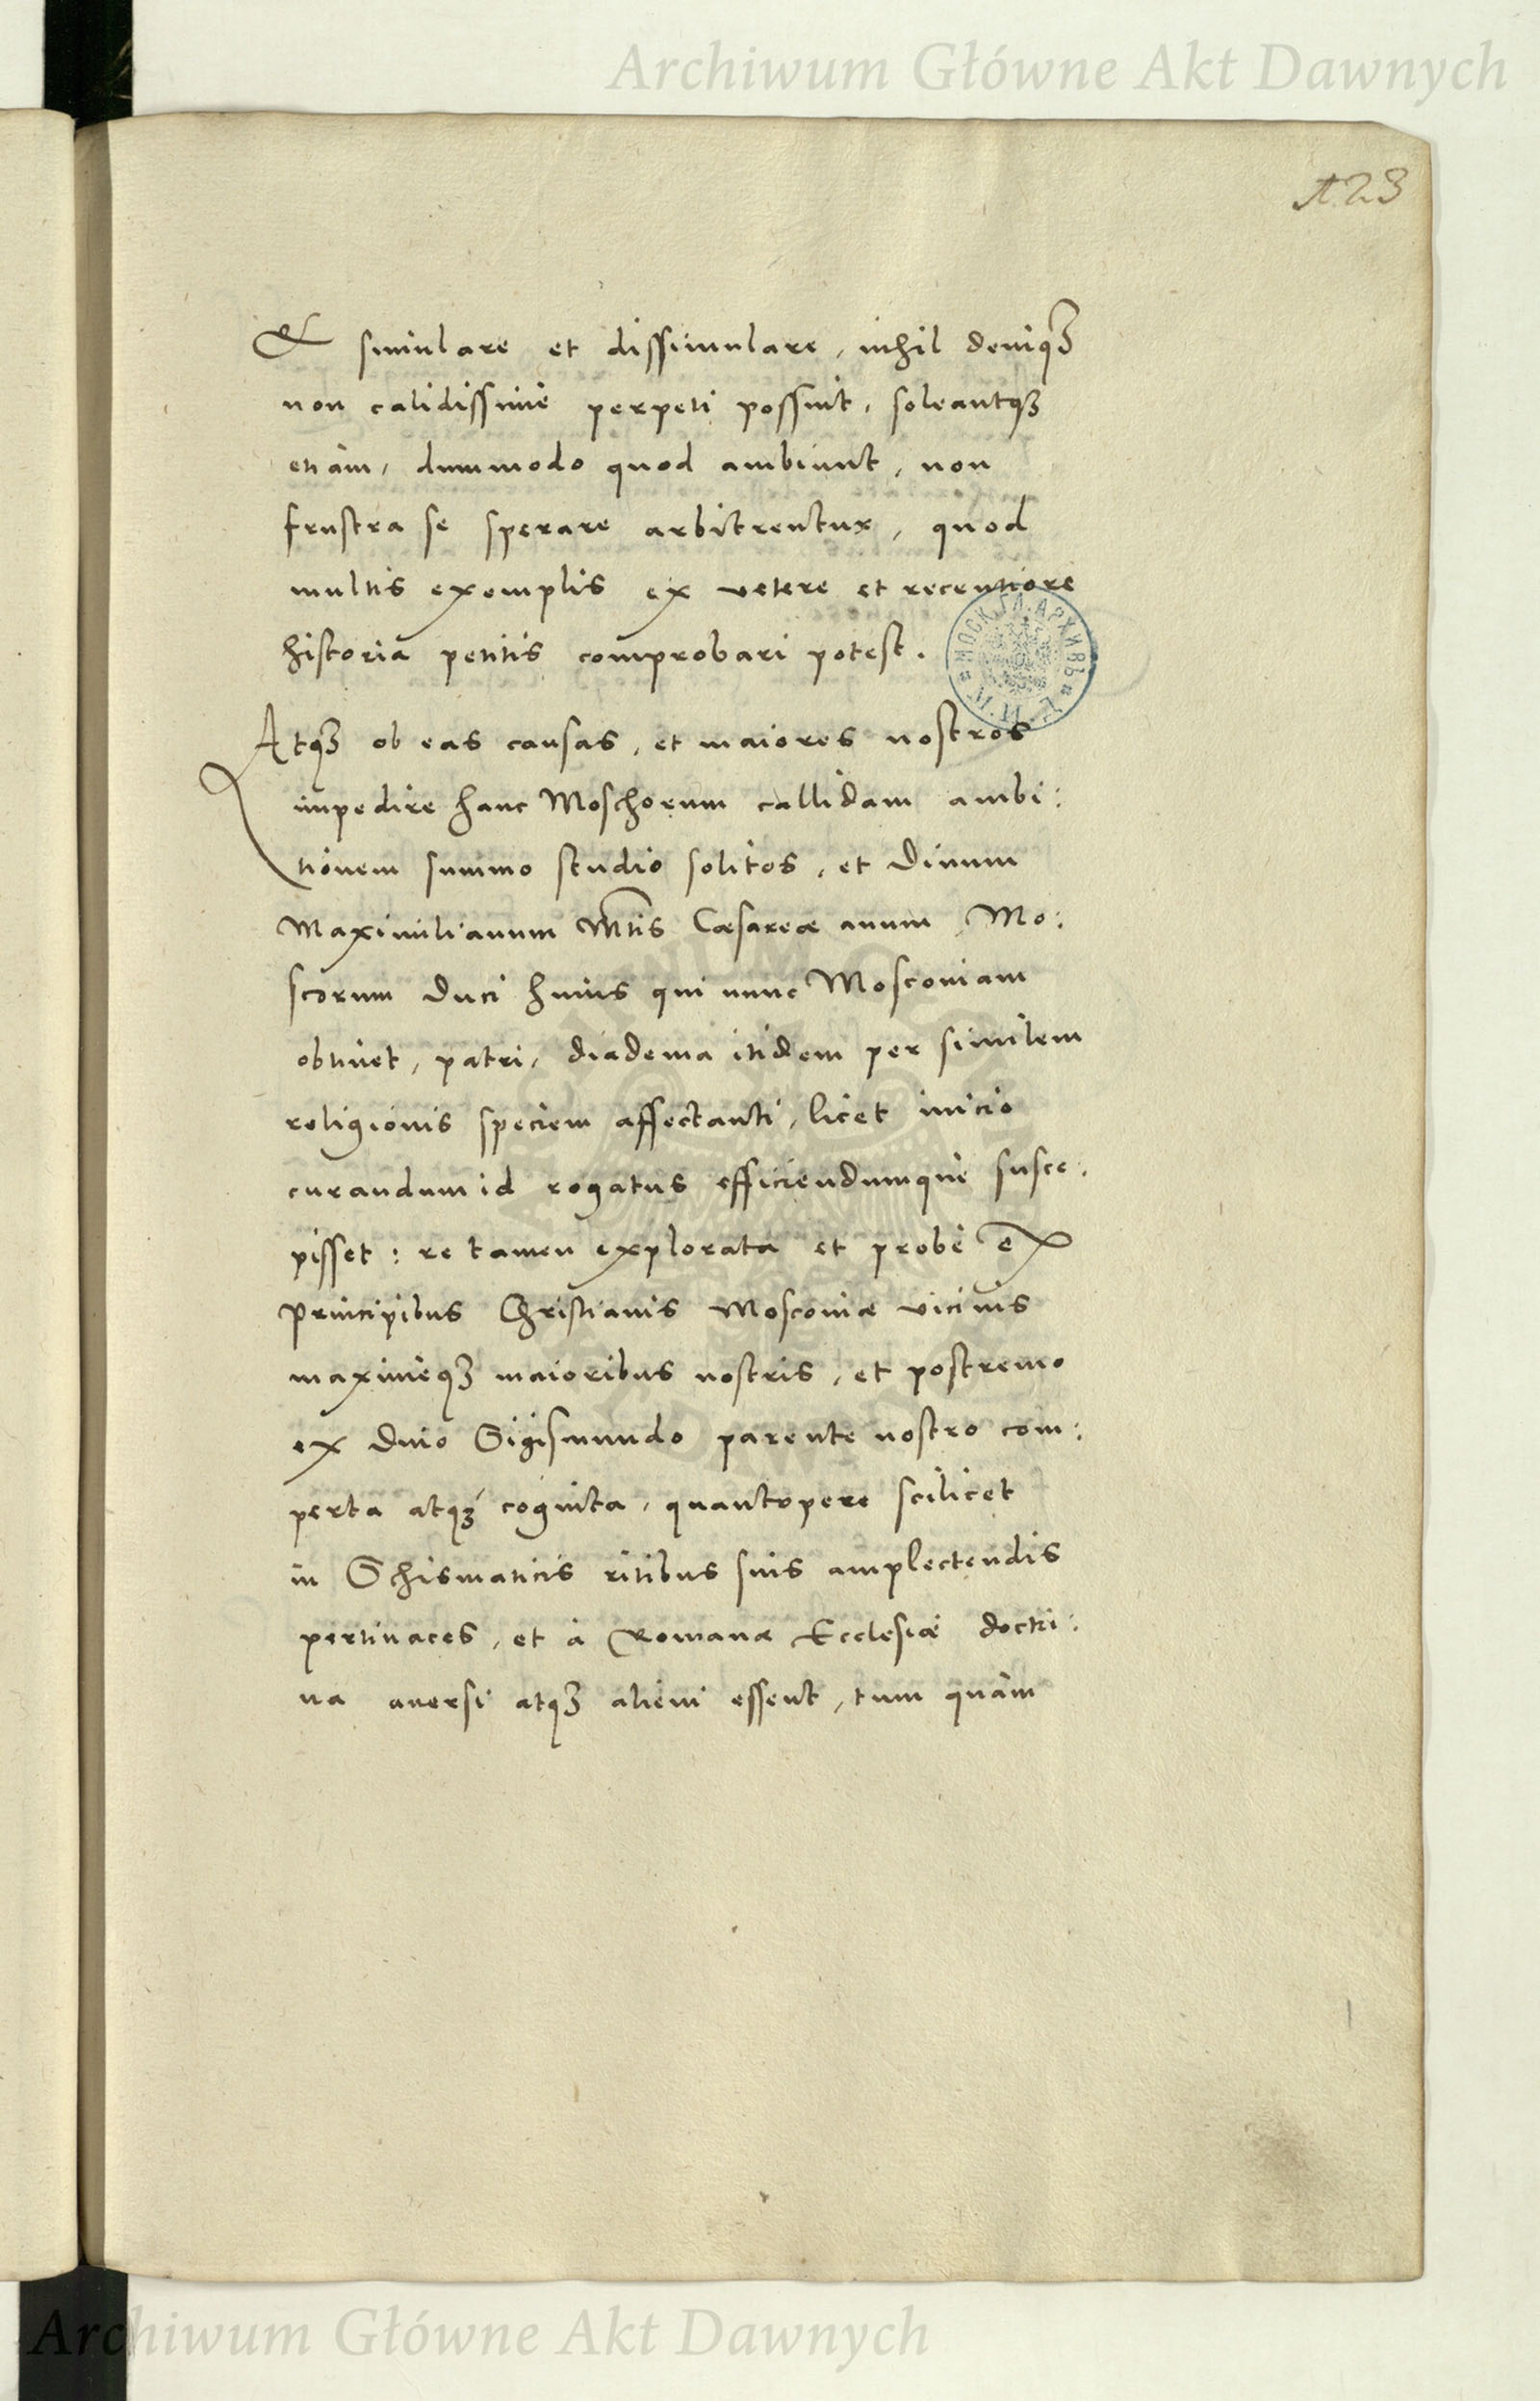 Archiwum Główne Akt Dawnych
123
& simulare et dissimulare, nihil deniqȝ
non calidissime perpeti possint, soleantqȝ
etiam, dummodo quod ambiunt, non
frustra se sperare arbitrentur, quod
multis exemplis ex vetere et recentiore
historia petitis comprobari potest.
МОСК. ГЛ. АРХИВЪ М. И. Д.
Atqȝ ob eas causas, et maiores nostros
impedire hanc Moschorum callidam ambi:
tionem summo studio solitos, et Diuum
Maximilianum Mtis Cæsareæ auum, Mo:
scorum Duci huius qui nunc Moscouiam
obtinet, patri, diadema itidem per similem
religionis speciem affectanti, licet inicio
curandum id rogatus efficiendumque susce:
pisset: re tamen explorata et probè ex
Principibus Christianis Moscouiæ vicinis
maximèqȝ maioribus nostris, et postremo
ex Diuo Sigismundo parente nostro com:
perta atqȝ cognita, quantopere scilicet
in Schismaticis ritibus suis amplectendis
pertinaces, et à Romanæ Ecclesiæ doctri:
na auersi atqȝ alieni essent, tum quàm
Archiwum Główne Akt Dawnych